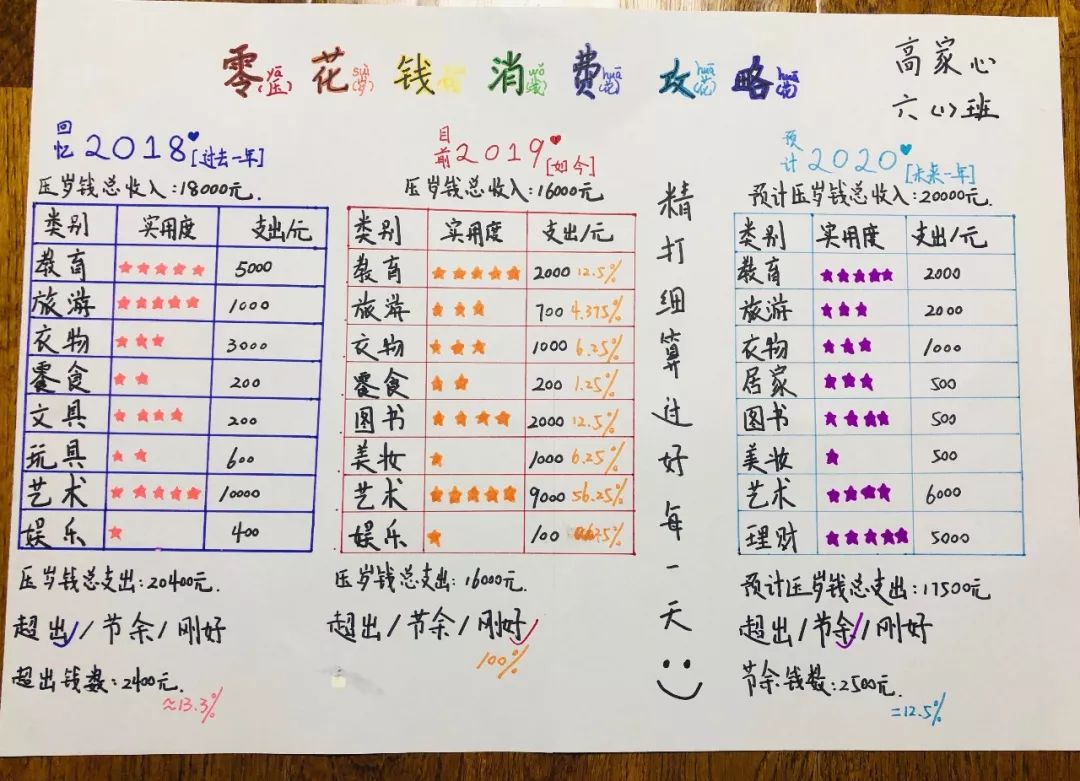 零花钱消费攻略
yā suì yǒng huā huā huā
(压)(岁)(花)(花)(花)
高家心
六(1)班
回忆2018[过去一年]
压岁钱总收入:18000元.
类别 实用度 支出/元
教育 ★★★★★ 5000
旅游 ★★★★★ 1000
衣物 ★★★ 3000
零食 ★★ 200
文具 ★★★★ 200
玩具 ★★ 600
艺术 ★★★★★ 10000
娱乐 ★ 400
压岁钱总支出:20400元.
超出✓/节余/刚好
超出钱数:2400元.
≈13.3%
目前2019[如今]
压岁钱总收入:16000元.
类别 实用度 支出/元
教育 ★★★★★ 2000 12.5%
旅游 ★★★ 700 4.375%
衣物 ★★★ 1000 6.25%
零食 ★★ 200 1.25%
图书 ★★★★ 2000 12.5%
美妆 ★ 1000 6.25%
艺术 ★★★★★ 9000 56.25%
娱乐 ★ 100
压岁钱总支出:16000元.
超出/节余/刚好✓
100%
精打细算过好每一天
预计2020[未来一年]
预计压岁钱总收入:20000元.
类别 实用度 支出/元
教育 ★★★★★ 2000
旅游 ★★★ 2000
衣物 ★★★ 1000
居家 ★★★ 500
图书 ★★★★ 500
美妆 ★ 500
艺术 ★★★★ 6000
理财 ★★★★★ 5000
预计压岁钱总支出:17500元
超出/节余✓/刚好
节余钱数:2500元.
=12.5%